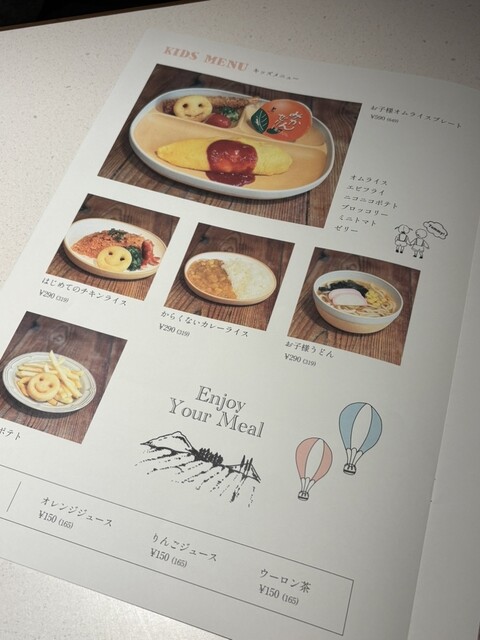 KIDS MENU キッズメニュー
お子様オムライスプレート
¥590 (649)
オムライス
エビフライ
ニコニコポテト
ブロッコリー
ミニトマト
ゼリー
みかんでちゅ
はじめてのチキンライス
¥290 (319)
からくないカレーライス
¥290 (319)
お子様うどん
¥290 (319)
ポテト
Enjoy
Your Meal
オレンジジュース
¥150 (165)
りんごジュース
¥150 (165)
ウーロン茶
¥150 (165)